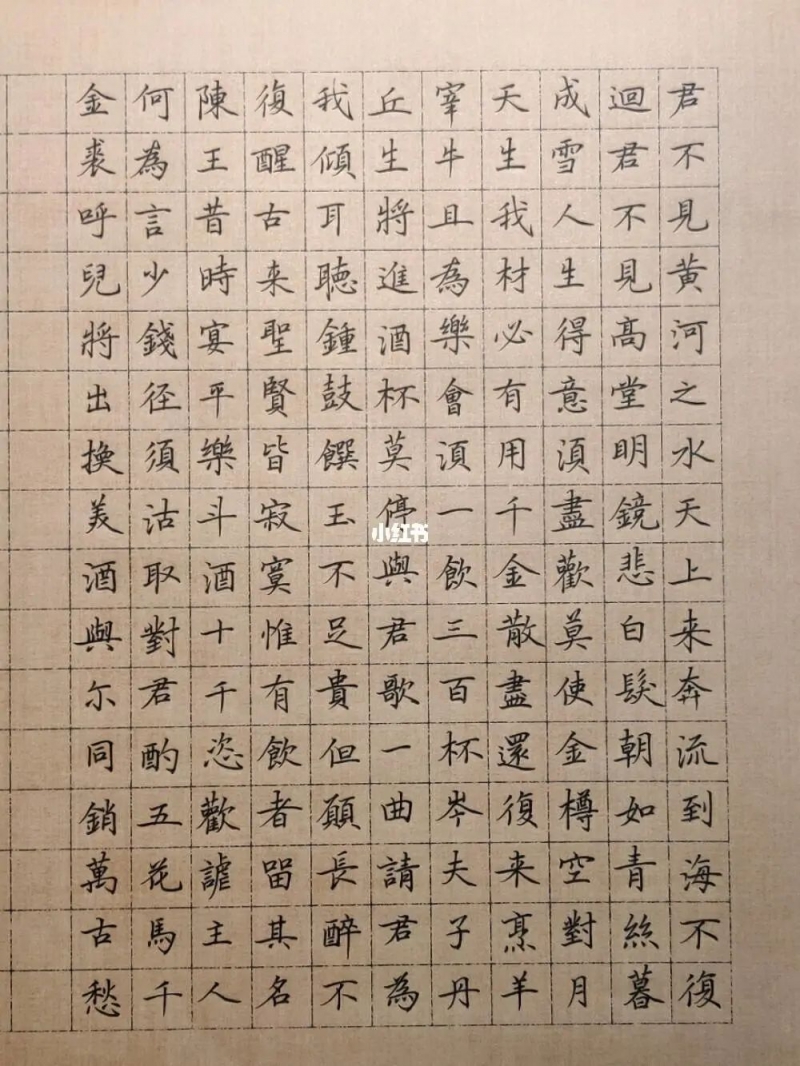 君不見黄河之水天上来奔流到海不復
迴君不見高堂明鏡悲白髮朝如青絲暮
成雪人生得意須盡歡莫使金樽空對月
天生我材必有用千金散盡還復来烹羊
宰牛且為樂會須一飲三百杯岑夫子丹
丘生將進酒杯莫停與君歌一曲請君為
我傾耳聽鍾鼓饌玉不足貴但願長醉不
復醒古来聖賢皆寂寞惟有飲者留其名
陳王昔時宴平樂斗酒十千恣歡謔主人
何為言少錢径須沽取對君酌五花馬千
金裘呼兒將出換美酒與尔同銷萬古愁
小红书